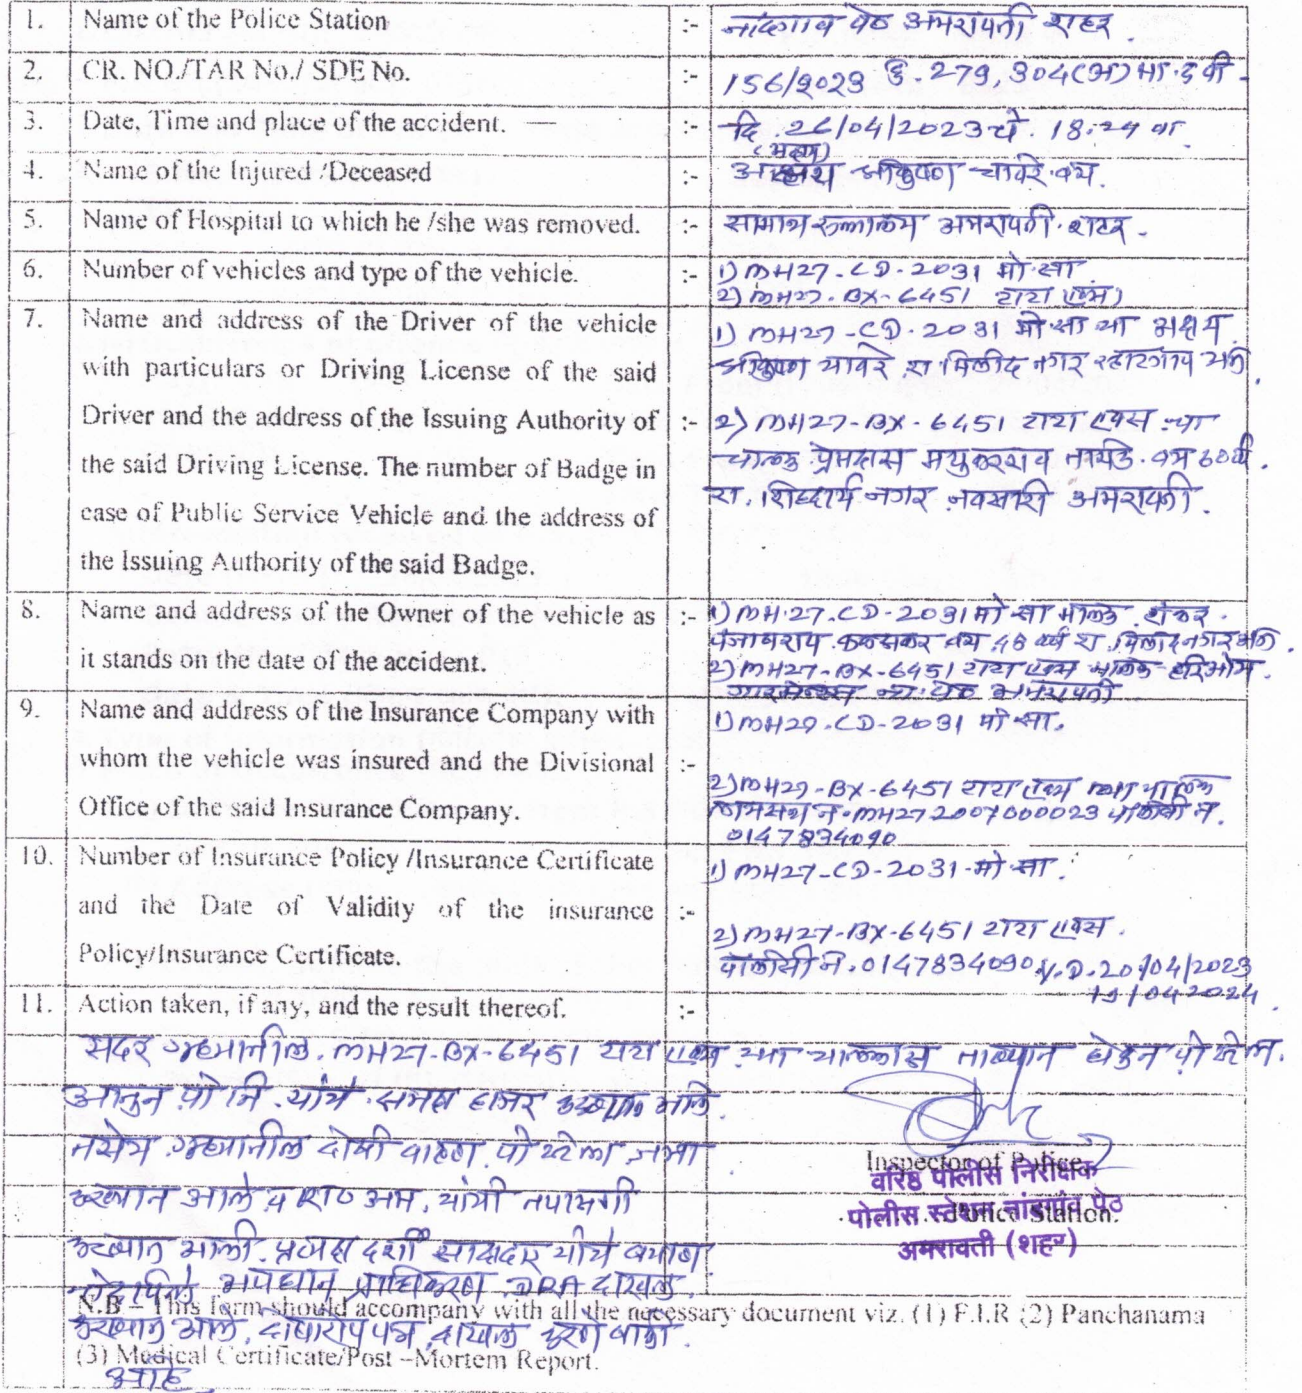 1. Name of the Police Station :- नांदगाव पेठ अमरावती शहर.
2. CR. NO./TAR No./ SDE No. :- 156/2023 279, 304(अ) भा.द.वी.
3. Date, Time and place of the accident. — :- दि. 26/04/2023 चे. 18:24 वा
4. Name of the Injured /Deceased :- (मयत)
अक्षय चावरे वय.
5. Name of Hospital to which he /she was removed. :- सामान्य रुग्णालय अमरावती शहर.
6. Number of vehicles and type of the vehicle. :- 1) MH27-CD-2031 मो.सा
2) MH27-BX-6451 टाटा एक्स)
7. Name and address of the Driver of the vehicle
with particulars or Driving License of the said
Driver and the address of the Issuing Authority of :-
the said Driving License. The number of Badge in
case of Public Service Vehicle and the address of
the Issuing Authority of the said Badge.
1) MH27-CD-2031 मो सा चा अक्षय
चावरे रा मिलींद नगर
2) MH27-BX-6451 टाटा एक्स चा
चालक प्रेमदास मधुकरराव वय 60 वर्ष.
रा. सिध्दार्थ नगर नवसारी अमरावती.
8. Name and address of the Owner of the vehicle as :-
it stands on the date of the accident.
1) MH-27-CD-2031 मो सा मालक शंकर
पंजाबराव वय 48 वर्ष रा. मिलींद नगर
2) MH27-BX-6451 टाटा एक्स मालक हरिओम
अमरावती
9. Name and address of the Insurance Company with
whom the vehicle was insured and the Divisional :-
Office of the said Insurance Company.
1) MH27-CD-2031 मो सा.
2) MH27-BX-6451 टाटा एक्स चा चालक
लायसन्स नं. MH27 2007000023 पॉलीसी नं.
0147834090
10. Number of Insurance Policy /Insurance Certificate
and the Date of Validity of the insurance :-
Policy/Insurance Certificate.
1) MH27-CD-2031-मो सा.
2) MH27-BX-6451 टाटा एक्स.
पॉलीसी नं. 0147834090 V.D. 20/04/2023
19/04 2024
11. Action taken, if any, and the result thereof. :-
सदर गुन्ह्यातील. MH27-BX-6451 टाटा एक्स च्या चालकास ताब्यात घेवून पो स्टेला.
आणुन पो नि. यांचे समक्ष हजर करण्यात आले.
तसेच गुन्ह्यातील दोषी वाहन पो स्टेला जमा
करण्यात आले व यांची तपासणी
करण्यात आली. प्रत्यक्ष दर्शी साक्षदार यांचे बयान
अपघात प्राधिकरण दाखल
करण्यात आले, दोषारोप पत्र दाखल करणे बाकी
आहे.
Inspector of Police
वरिष्ठ पोलीस निरीक्षक
Police Station.
पोलीस स्टेशन नांदगांव पेठ
अमरावती (शहर)
N.B – This form should accompany with all the necessary document viz. (1) F.I.R (2) Panchanama
(3) Medical Certificate/Post –Mortem Report.